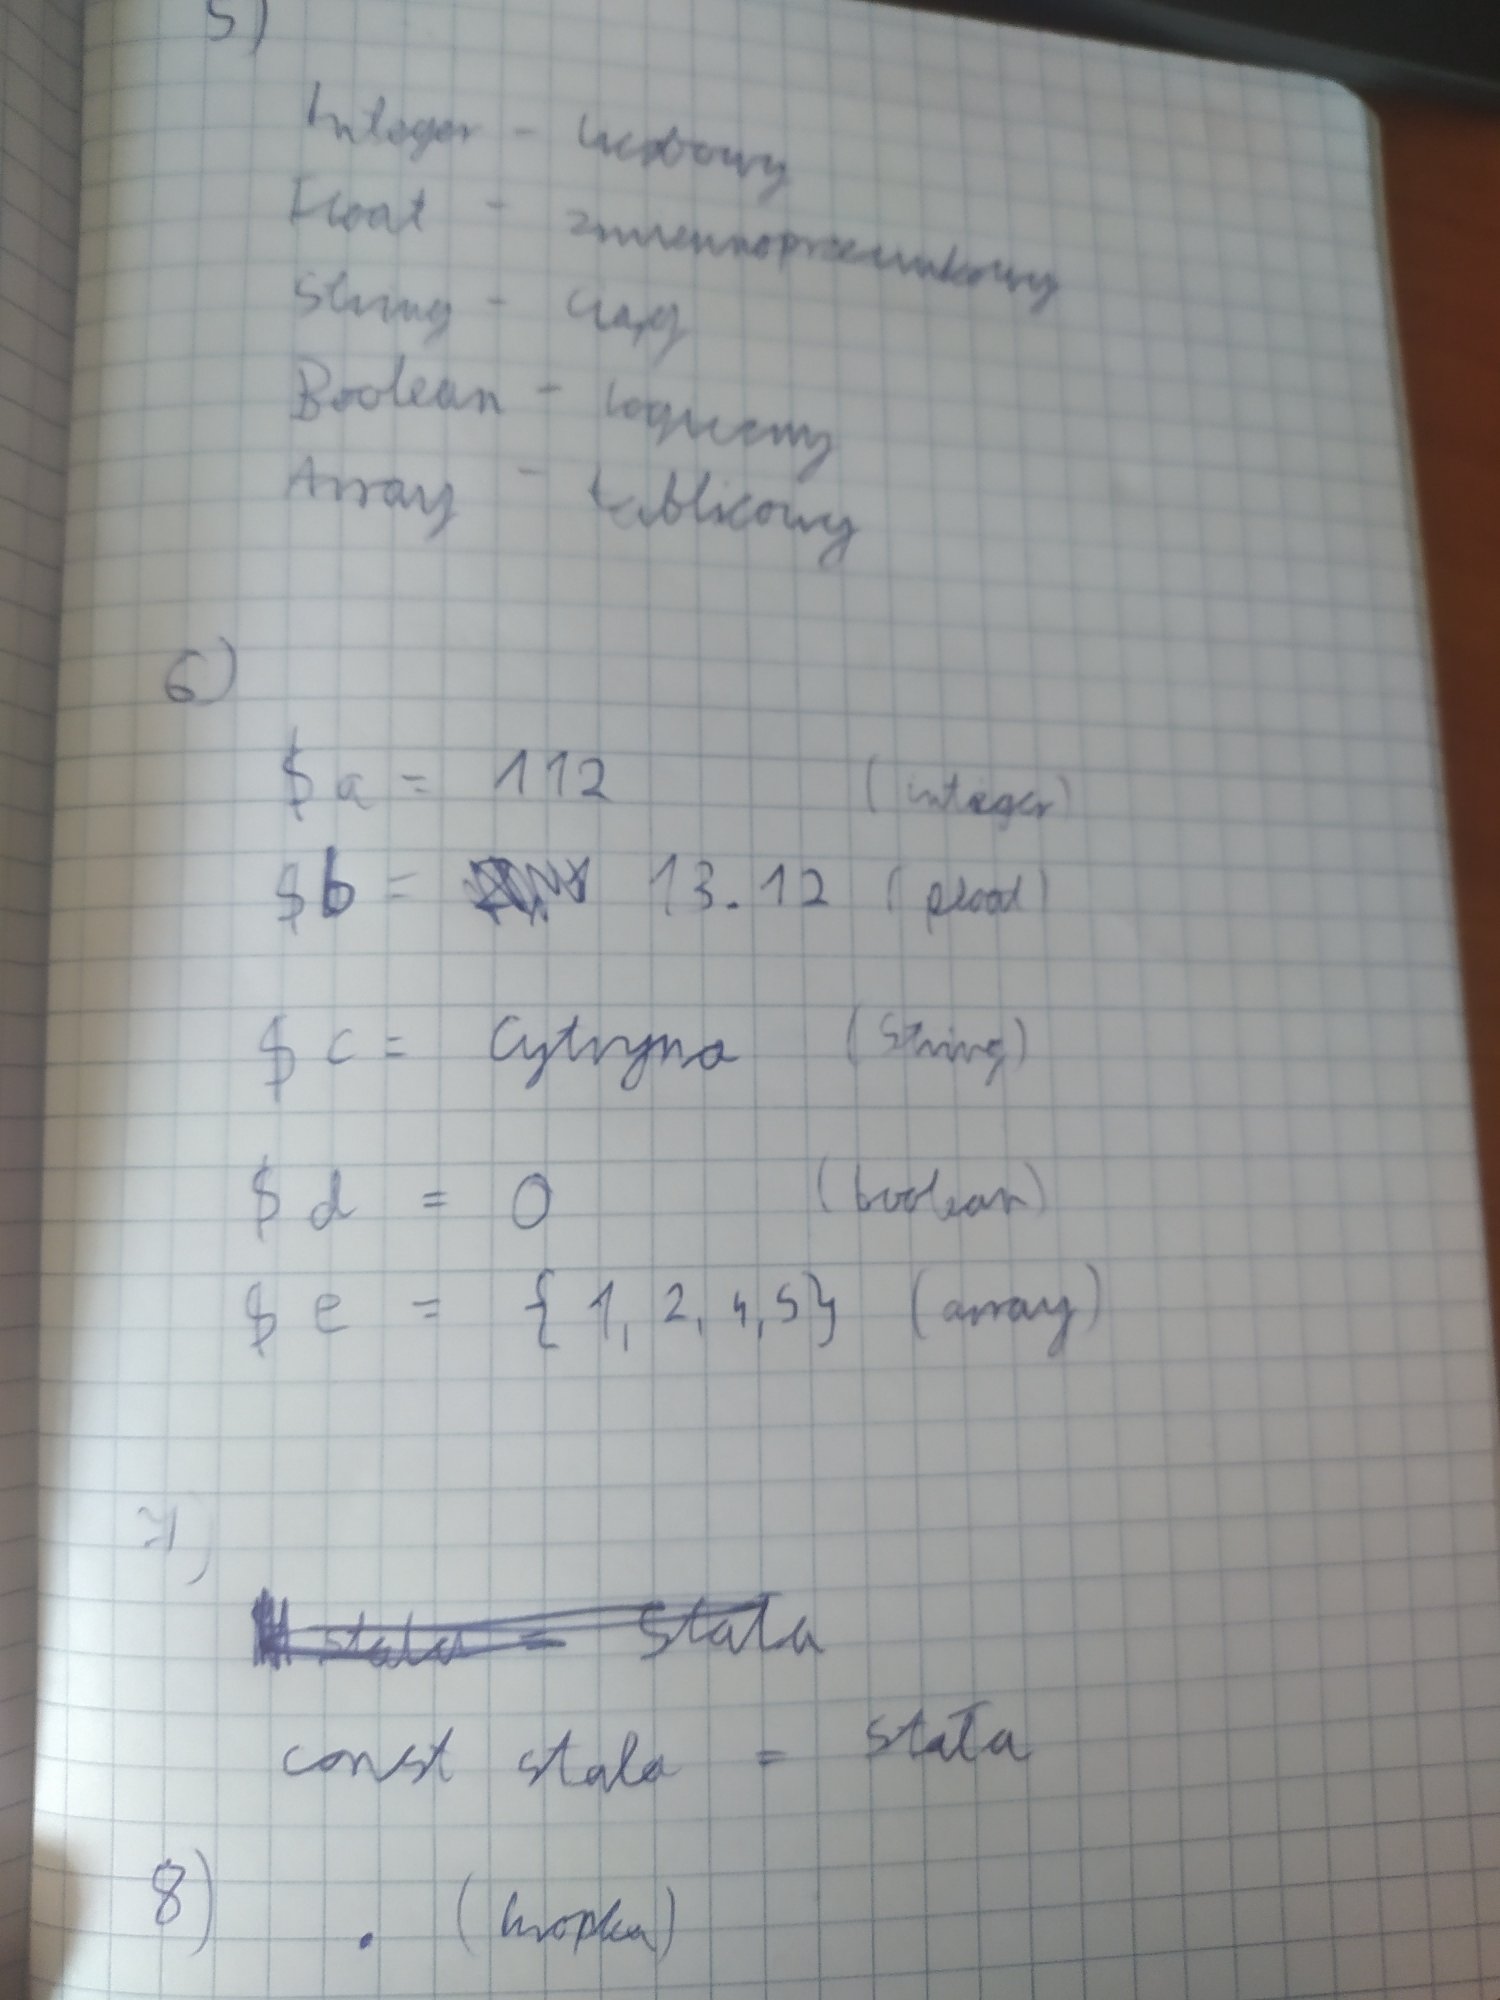 5)
Integer - liczbowy
Float - zmiennoprzecinkowy
String - ciąg
Boolean - logiczny
Array - tablicowy
6)
$a = 112 (integer)
$b = 13.12 (float)
$c = Cytryna (String)
$d = 0 (boolean)
$e = {1, 2, 4, 5} (array)
7)
stala = stała
const stala = stała
8) . (kropka)